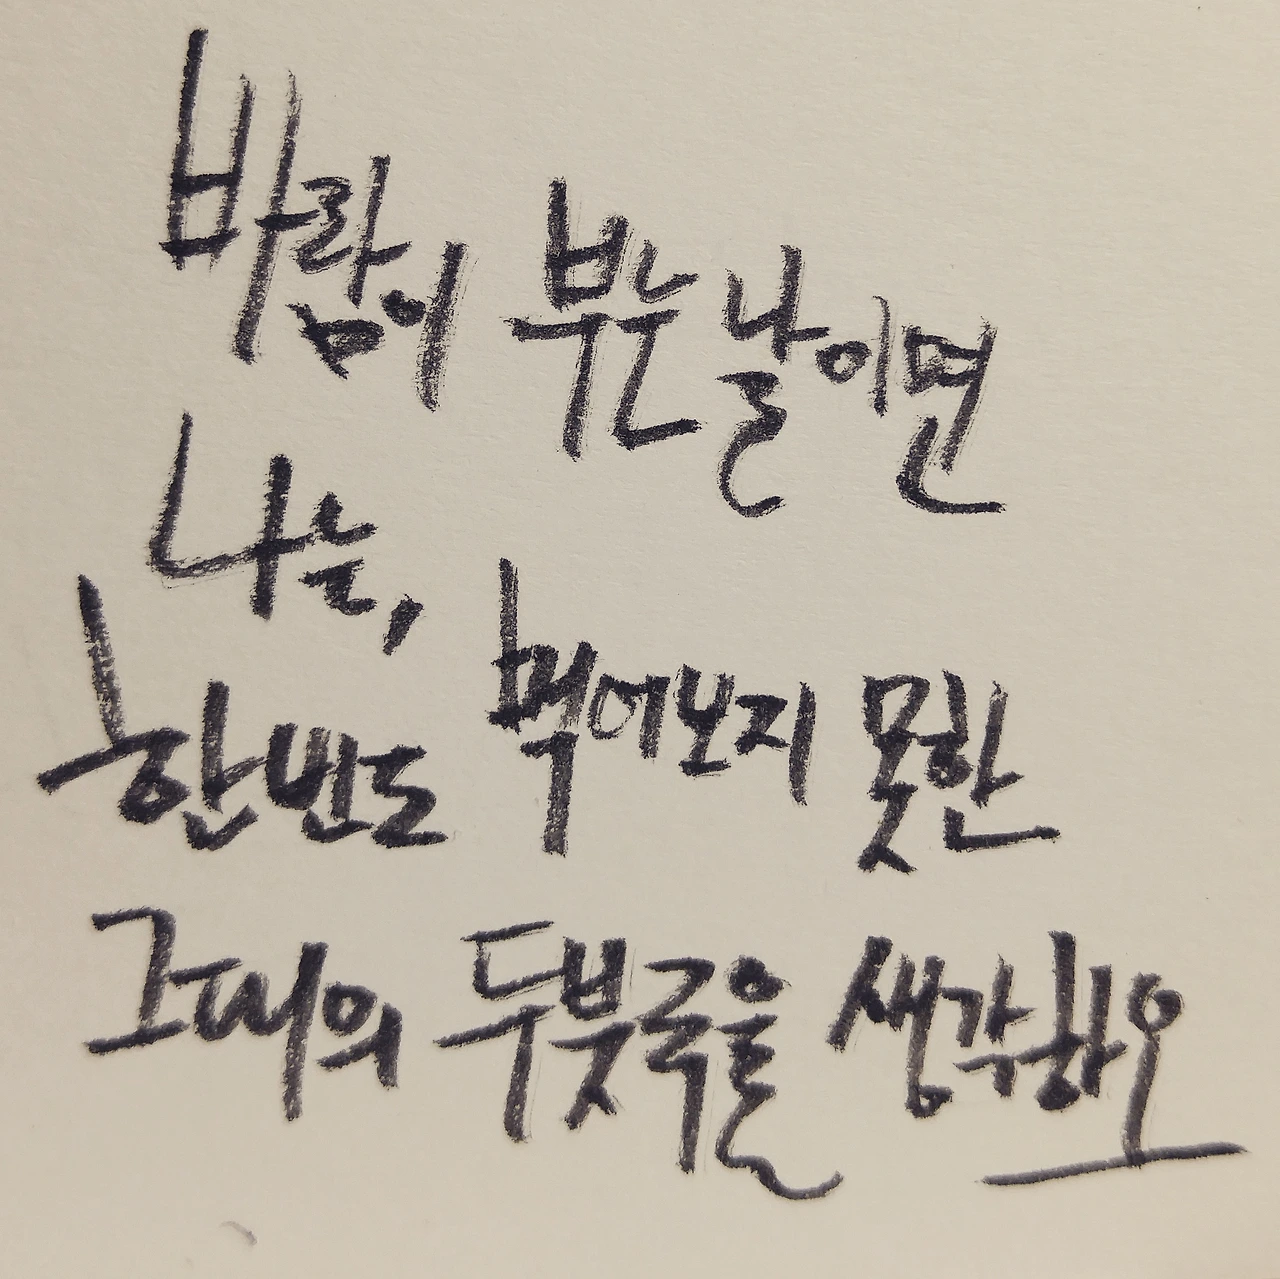 바람이 부는 날이면
나는,
한번도 먹어보지 못한
그대의 두붓국을 생각하오